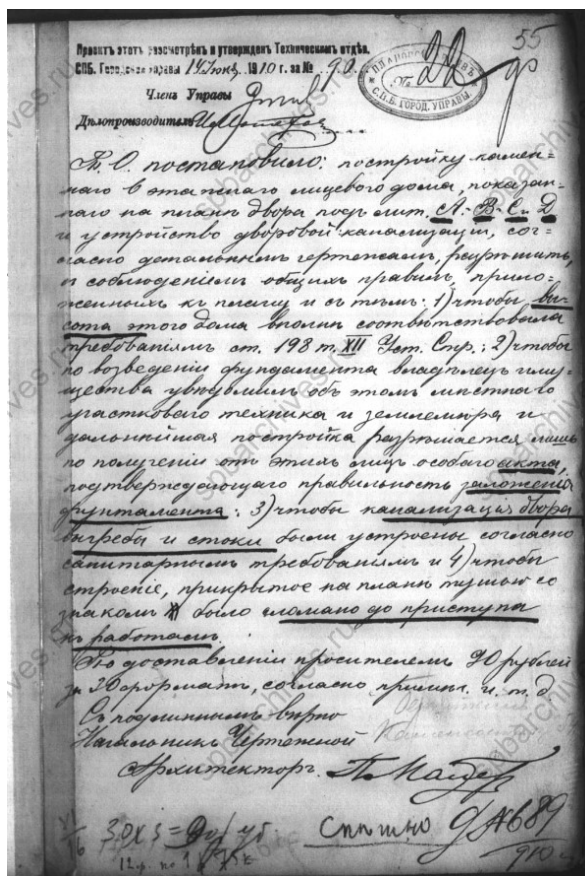 55
Проектъ этотъ разсмотрѣнъ и утвержденъ Техническимъ отдѣл.
СПБ. Городской Управы 14 Іюня 1910 г. за № 90
Членъ Управы
Дѣлопроизводитель
С.П.Б. ГОРОД. УПРАВЫ.
№ 22
Т. О. постановило: постройку камен-
наго в этажнаго лицевого дома, показан-
наго на планѣ двора подъ лит. А-В-С-Д
и устройство дворовой канализаціи, сог-
ласно детальнымъ чертежамъ, разрѣшить,
съ соблюденіемъ общихъ правилъ, прило-
женныхъ къ плану и съ тѣмъ: 1) чтобы вы-
сота этого дома вполнѣ соотвѣтствовала
требованіямъ ст. 198 т. XII Уст. Стр.; 2) чтобы
по возведеніи фундамента владѣлецъ иму-
щества увѣдомилъ объ этомъ мѣстнаго
участковаго техника и землемѣра и
дальнѣйшая постройка разрѣшается лишь
по полученіи отъ этихъ лицъ особаго акта,
подтверждающаго правильность заложенія
фундамента; 3) чтобы канализація двора
выгребы и стоки были устроены согласно
санитарнымъ требованіямъ и 4) чтобы
строеніе, прикрытое на планѣ тушью со
знакомъ было сломано до приступа
къ работамъ.
По доставленіи просителемъ 90 рублей
за 30 форматъ, согласно примѣч. и т. д.
Съ подлиннымъ вѣрно
Начальникъ Чертежной
Архитекторъ
VI/16 30 x 3 = 90 руб. Спѣшно № 689
910
spbarchives.ru